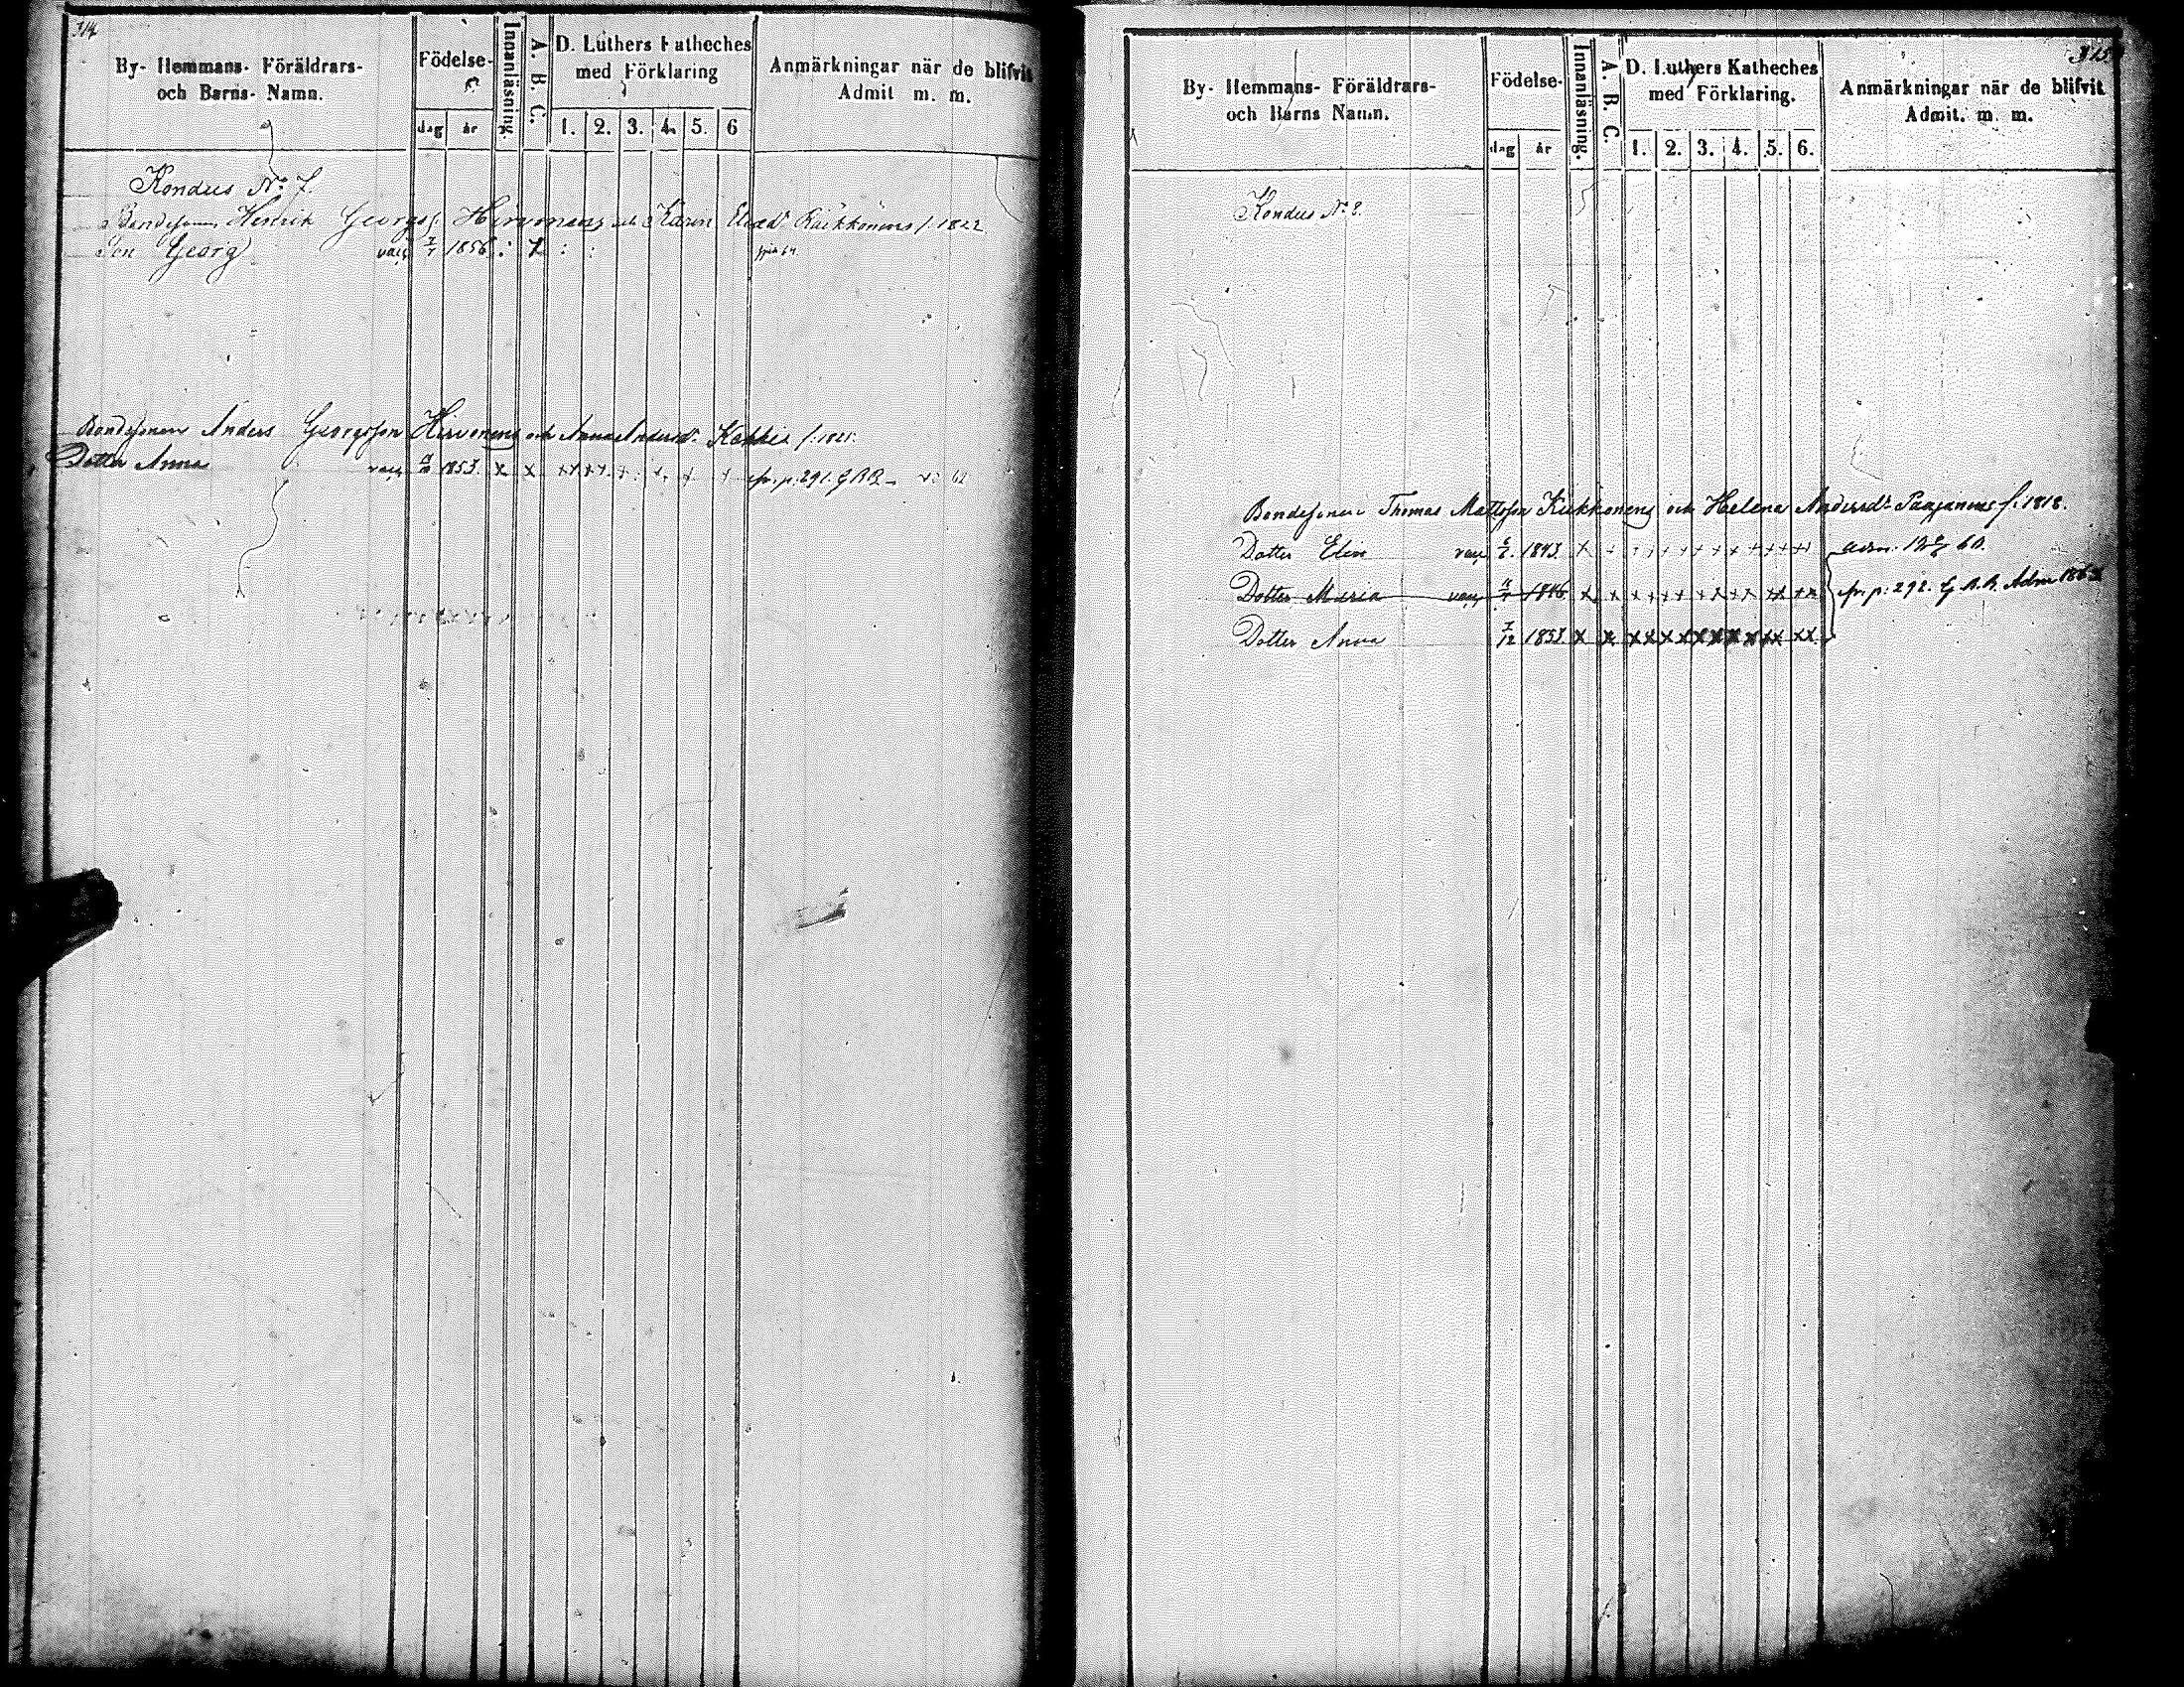 314
By- Hemmans- Föräldrars-
och Barns- Namn.
Födelse-
dag år
Innanläsning.
A. B. C.
D. Luthers Katheches
med Förklaring
1. 2. 3. 4. 5. 6
Anmärkningar när de blifvit
Admit m. m.
Kondus No 7.
Bondesonen Henrik Georgs. Hirvonens och Karin Räikkönens f. 1822
Son Georg vac. 1856
Bondesonen Anders Georgsson Hirvonens och Anna Andersd:r Kekkis f. 1821.
Dotter Anna vac. 1853. x x x x x x fr. p. 291. 62
315
By- Hemmans- Föräldrars-
och Barns Namn.
Födelse-
dag år
Innanläsning.
A. B. C.
D. Luthers Katheches
med Förklaring.
1. 2. 3. 4. 5. 6.
Anmärkningar när de blifvit
Admit. m. m.
Kondus No 8.
Bondesonen Thomas Mattsson Kiikkonens och Helena Andersd:r Paajanens f. 1818.
Dotter Elin vac. 1843. 60.
Dotter Maria vac. 1846 fr. p. 292. Adm 186
Dotter Anna 7/12 1853.